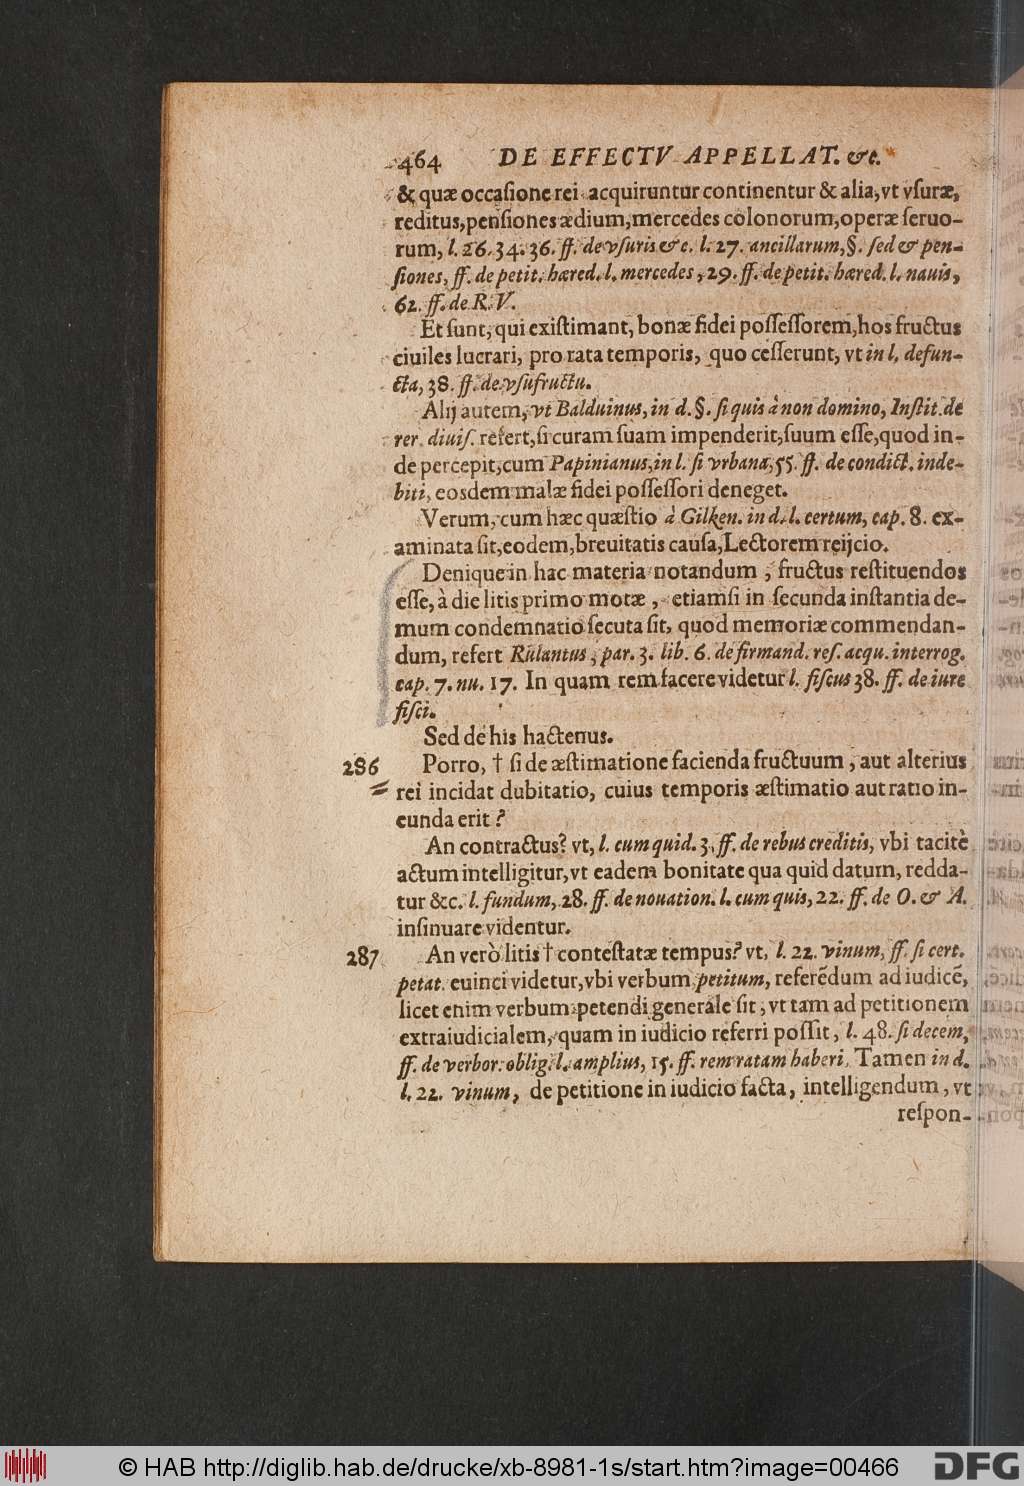 464 DE EFFECTV APPELLAT. &c.
& quæ occaſione rei acquiruntur continentur & alia, vt vſuræ,
reditus, penſiones ædium, mercedes colonorum, operæ ſeruo-
rum, l. 26. 34. 36. ff. de vſuris & c. l. 27. ancillarum, §. ſed & pen-
ſiones, ff. de petit. hæred. l. mercedes, 29. ff. de petit. hæred. l. nauis,
62. ff. de R. V.
Et ſunt, qui exiſtimant, bonæ fidei poſſeſſorem, hos fructus
ciuiles lucrari, pro rata temporis, quo ceſſerunt, vt in l. defun-
cta, 38. ff. de vſufructu.
Alij autem, vt Balduinus, in d. §. ſi quis à non domino, Inſtit. de
rer. diuiſ. refert, ſi curam ſuam impenderit, ſuum eſſe, quod in-
de percepit, cum Papinianus, in l. ſi vrbana, 55. ff. de condict. inde-
biti, eosdem malæ fidei poſſeſſori deneget.
Verum, cum hæc quæſtio à Gilken. in d. l. certum, cap. 8. ex-
aminata ſit, eodem, breuitatis cauſa, Lectorem reijcio.
Denique in hac materia notandum, fructus reſtituendos
eſſe, à die litis primo motæ, etiamſi in ſecunda inſtantia de-
mum condemnatio ſecuta ſit, quod memoriæ commendan-
dum, refert Rulantus, par. 3. lib. 6. de firmand. reſ. acqu. interrog.
cap. 7. nu. 17. In quam rem facere videtur l. fiſcus 38. ff. de iure
fiſci.
Sed de his hactenus.
286 Porro, † ſi de æſtimatione facienda fructuum, aut alterius
rei incidat dubitatio, cuius temporis æſtimatio aut ratio in-
eunda erit?
An contractus? vt, l. cum quid. 3. ff. de rebus creditis, vbi tacitè
actum intelligitur, vt eadem bonitate qua quid datum, redda-
tur &c. l. fundum, 28. ff. de nouation. l. cum quis, 22. ff. de O. & A.
inſinuare videntur.
287 An verò litis † conteſtatæ tempus? vt, l. 22. vinum, ff. ſi cert.
petat. euinci videtur, vbi verbum petitum, referẽdum ad iudicẽ,
licet enim verbum petendi generale ſit, vt tam ad petitionem
extraiudicialem, quam in iudicio referri poſſit, l. 48. ſi decem,
ff. de verbor. oblig. l. amplius, 15. ff. rem ratam haberi. Tamen in d.
l. 22. vinum, de petitione in iudicio facta, intelligendum, vt
reſpon-
© HAB http://diglib.hab.de/drucke/xb-8981-1s/start.htm?image=00466
DFG